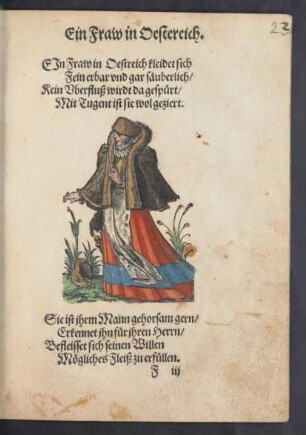 Ein Fraw in Oestereich.
23
EIn Fraw in Oestreich kleidet sich
Fein erbar vnd gar säuberlich/
Kein Vberfluß wirdt da gespürt/
Mit Tugent ist sie wol geziert.
Sie ist ihrm Mann gehorsam gern/
Erkennet ihn für ihren Herrn/
Befleisset sich seinen Willen
Mögliches Fleiß zu erfüllen.
F iij